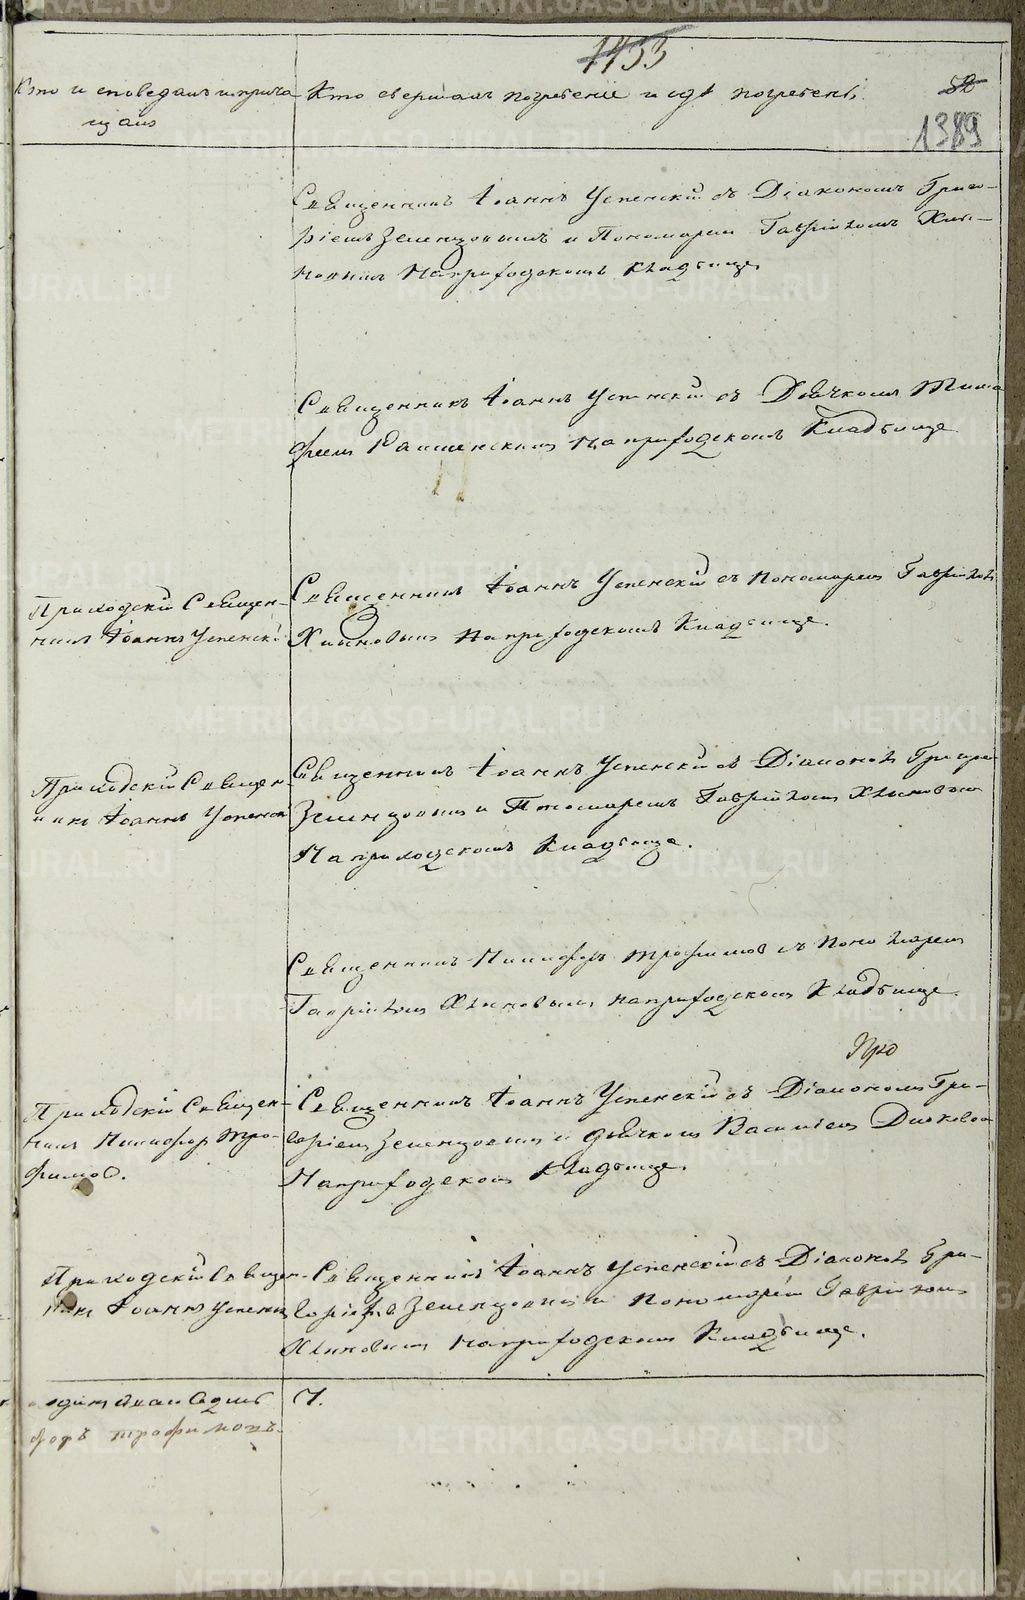 1433
Кто исповедалъ иприча
щалъ
Кто совершалъ погребенiе и гдѣ погребены
1389
Священникъ Iоаннъ Успенскiй съ Дiакономъ Григо-
рiемъ Зеленцовымъ и Пономаремъ Гаврiиломъ Хлы-
новымъ На приходскомъ кладбище
Священникъ Iоаннъ Успенскiй съ Дьячкомъ Тимо
феемъ На приходскомъ Кладбище
Приходскiй Священ-
никъ Iоаннъ Успенскiй
Священникъ Iоаннъ Успенскiй съ Пономаремъ Гаврiиломъ
Хлыновымъ На приходскомъ Кладбище.
Приходскiй Священ
никъ Iоаннъ Успенскiй
Священникъ Iоаннъ Успенскiй съ Дiакономъ Григорiемъ
Зеленцовымъ и Пономаремъ Гаврiиломъ Хлыновымъ
На приходскомъ Кладбище.
Священникъ Никифоръ Трофимовъ съ Пономаремъ
Гаврiиломъ Хлыновымъ на приходскомъ Кладбище.
Приходскiй Священ-
никъ Никифоръ Тро-
фимовъ.
Священникъ Iоаннъ Успенскiй съ Дiакономъ Гри-
горiемъ Зеленцовымъ и дьячкомъ Василiемъ
На приходскомъ кладбище.
Приходскiй Священ-
никъ Iоаннъ Успенскiй
Священникъ Iоаннъ Успенскiй съ Дiакономъ Гри-
горiемъ Зеленцовымъ и пономаремъ Гаврiиломъ
Хлыновымъ на приходскомъ Кладбище.
форъ Трофимовъ.
METRIKI.GASO-URAL.RU